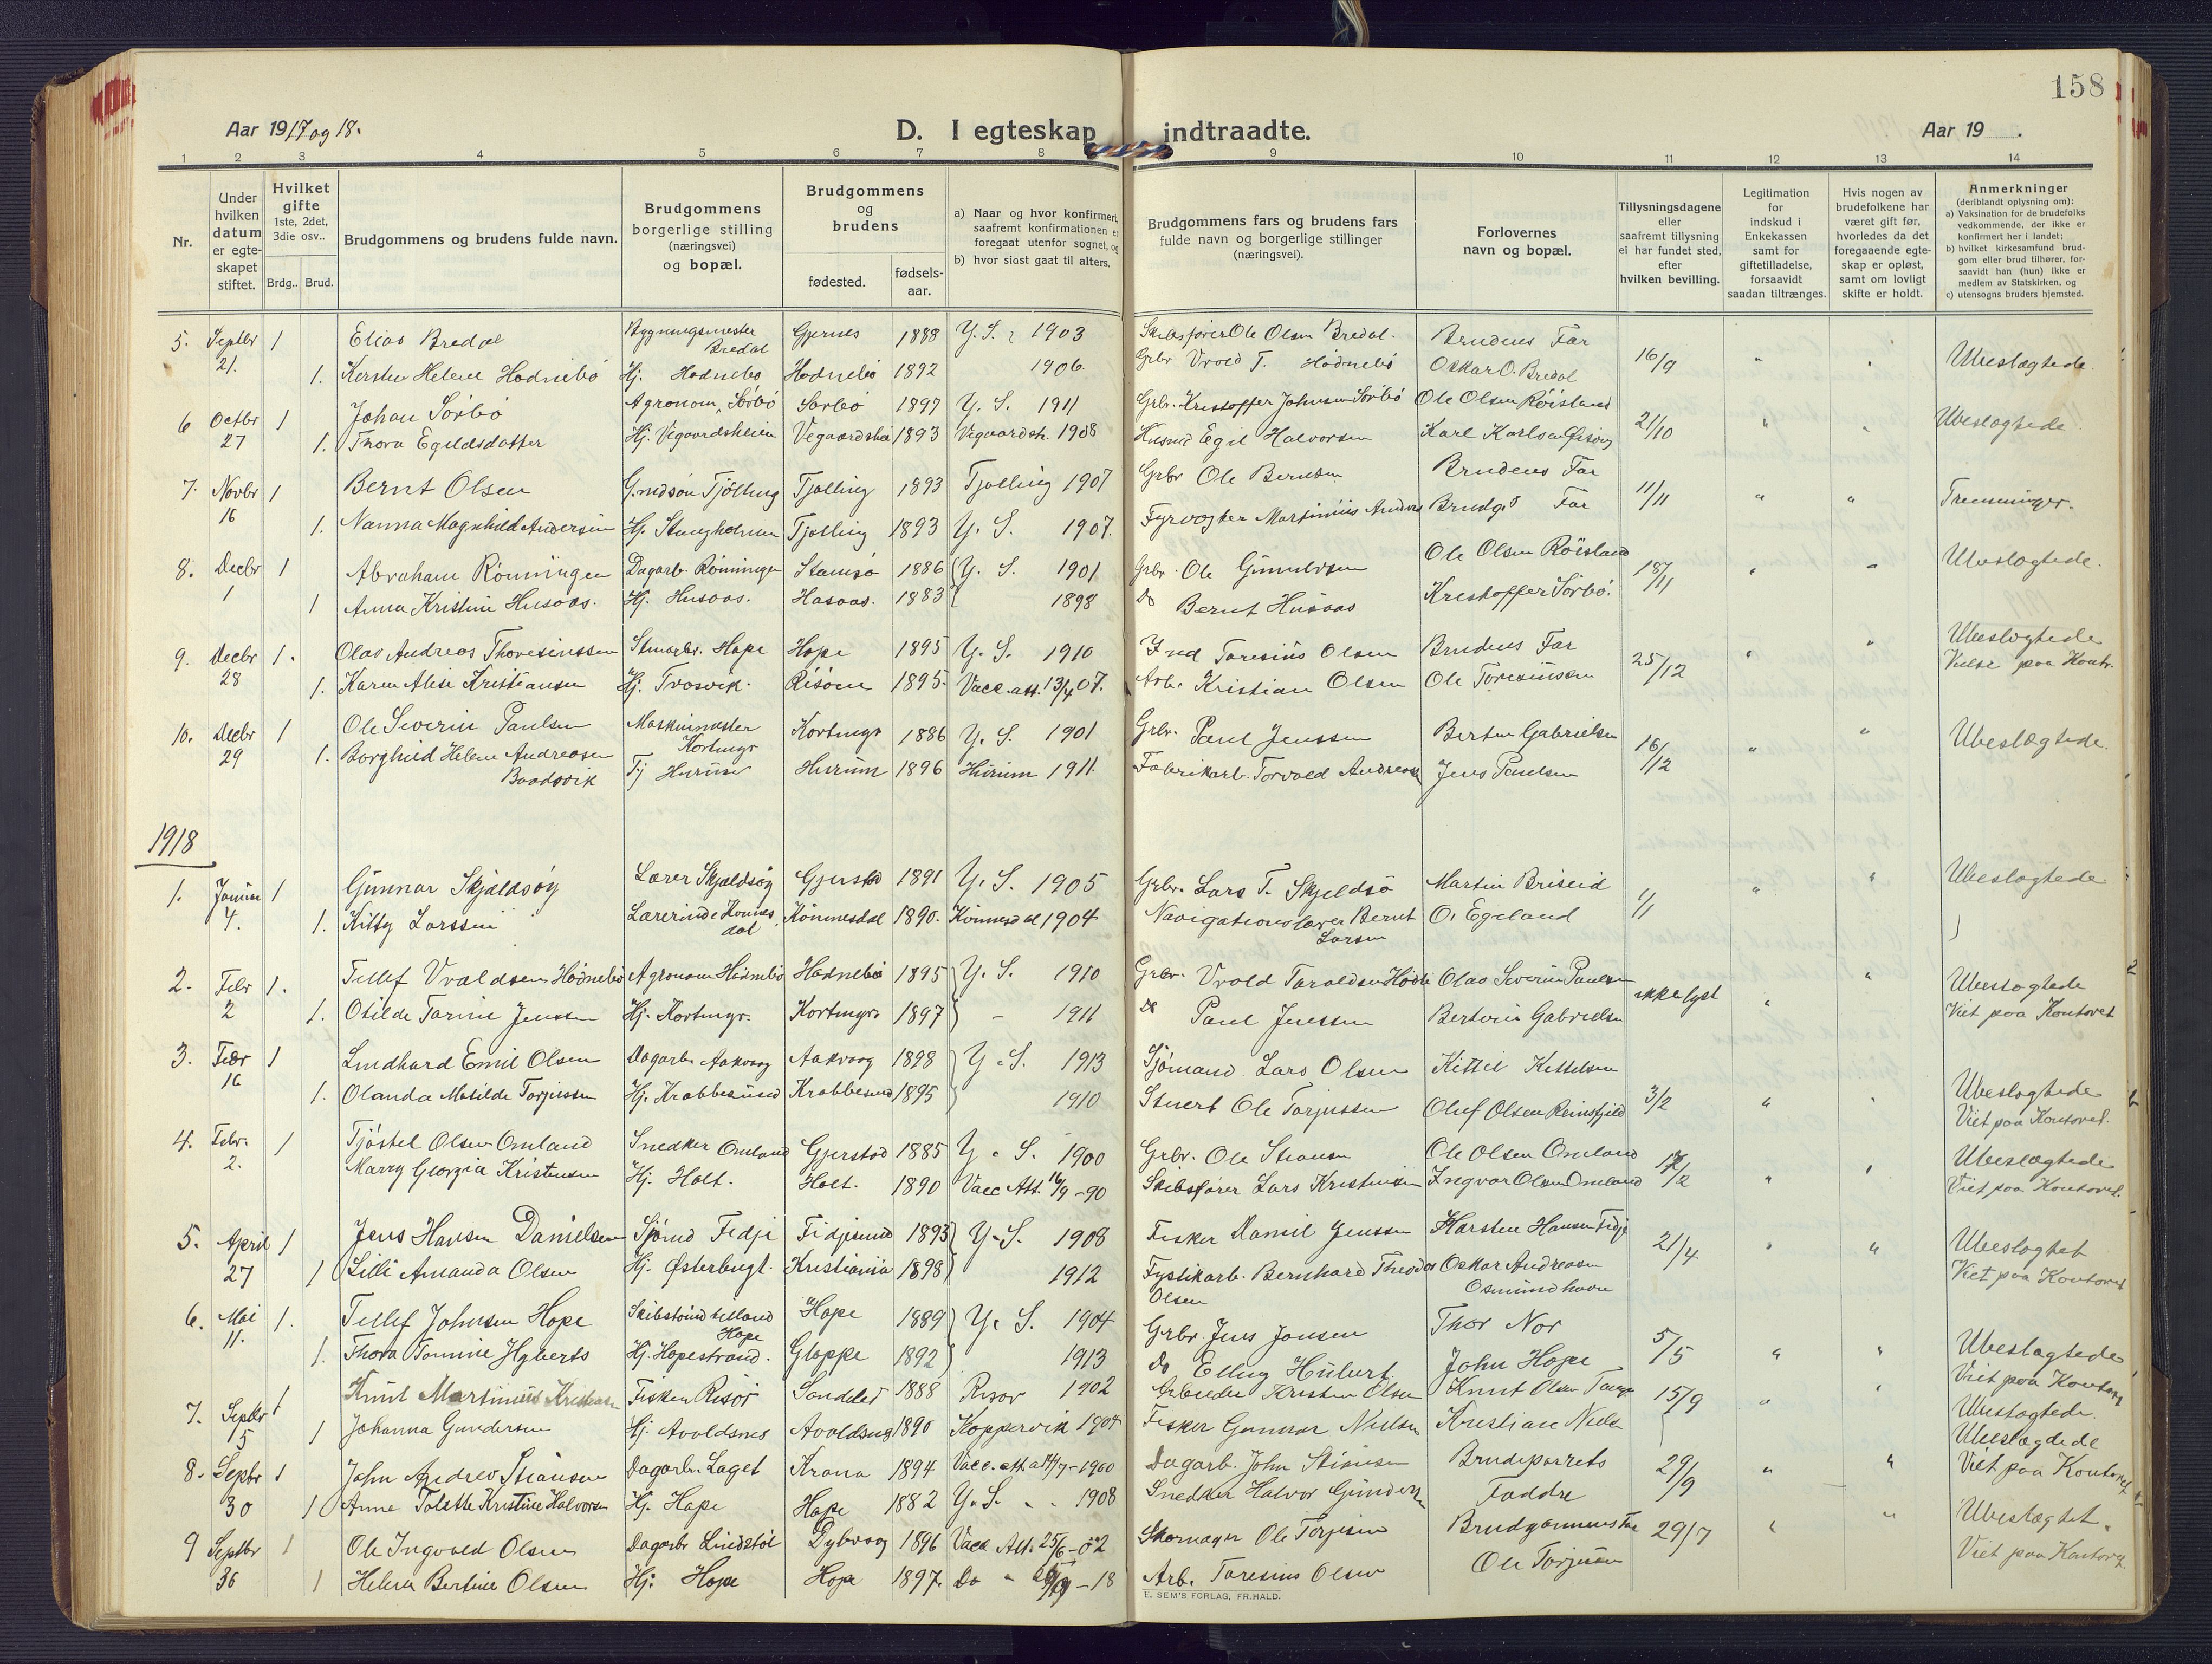 158
Aar 1917 og 18.
D. I egteskap indtraadte.
Aar 19 .
1 2 3 4 5 6 7 8 9 10 11 12 13 14
Nr.
Under hvilken datum er egteskapet stiftet.
Hvilket gifte 1ste, 2det, 3die osv..
Brdg.. Brud.
Brudgommens og brudens fulde navn.
Brudgommens borgerlige stilling (næringsvei) og bopæl.
Brudgommens og brudens
fødested.
fødsels-aar.
a) Naar og hvor konfirmert, saafremt konfirmationen er foregaat utenfor sognet, og
b) hvor sidst gaat til alters.
Brudgommens fars og brudens fars fulde navn og borgerlige stillinger (næringsvei).
Forlovernes navn og bopæl.
Tillysningsdagene eller saafremt tillysning ei har fundet sted, efter hvilken bevilling.
Legitimation for indskud i Enkekassen samt for giftetilladelse, forsaavidt saadan tiltrænges.
Hvis nogen av brudefolkene har været gift før, hvorledes da det foregaaende egteskap er opløst, samt om lovligt skifte er holdt.
Anmerkninger (deriblandt oplysning om):
a) Vaksination for de brudefolks vedkommende, der ikke er konfirmert her i landet;
b) hvilket kirkesamfund brudgom eller brud tilhører, forsaavidt han (hun) ikke er medlem av Statskirken, og
c) utensogns bruders hjemsted.
5. Septbr 21. 1 Elias Bredal Bygningsmester Bredal Gjernes 1888 Y. S. 1903 Ole Olsen Bredal. Brudens Far 16/9 " " Ubeslægtede.
1. Kirsten Helene Hødnebø Hj. Hødnebø Hødnebø 1892 1906. Grbr Vrold T. Hødnebø Oskar O. Bredal
6 Octbr 27 1 Johan Sørbø Agronom, Sørbø Sørbø 1897 Y. S. 1911 Grbr. Kristoffer Johnsen Sørbø Ole Olsen Røisland 21/10 " " Ubeslægtede.
1. Thora Egeldsdatter Hj. Vegaardsheien Vegaardshei 1893 Vegaardsh. 1908 Egil Halvorsen Karl Karlsen
7. Novbr 16 1 Bernt Olsen Tjølling Tjølling 1893 Tjølling 1907 Grbr Ole Berntsen Brudens Far 11/11 " " Tremenninger.
1. Nanna Magnhild Andersen Hj. Stangholmen Tjølling 1893 Y. S. 1907. Fyrvogter Martinius Anders Brudg.s Far
8. Decbr 1 1 Abraham Rønningen Dagarb. Rønningen Stamsø 1886 Y. S. 1901 Grbr. Ole Gunnersen Ole Olsen Røisland 18/11 " " Ubeslægtede.
1 Anna Kristine Husaas. Hj. Husaas. Husaas. 1883 1898 Do Bernt Husaas Kristoffer Sørbø.
9. Decbr 28 1. Olav Andreas Thoresiussen Hope Hope 1895 Y. S. 1910 Ind Taresius Olsen Brudens Far 25/12 " " Ubeslægtede
1. Karen Alise Kristiansen Hj. Trosvik. Risøen 1895. Vacc. att. 13/4 07. Arb. Kristian Olsen Ole Toresiussen Vielse paa Kontr.
10. Decbr 29 1 Ole Severin Paulsen Maskinmester Kortmyr Kortmyr 1886 Y. S. 1901 Grbr. Paul Jenssen Bertin Gabrielsen 16/12 " " Ubeslægtede.
1. Borghild Helene Andreasen Baadsvik Tj Hurum Hurum 1896 Hurum 1911. Fabrikarb. Torvald Andreasen Jens Paulsen
1918
1. Januar 4. 1 Gunnar Skjældsøy Lærer Skjældsøy Gjerstad 1891 Y. S. 1905 Grbr. Lars T. Skjeldsø Martin Briseid 1/1 " " Ubeslægtede
1. Kitty Larssen Lærerinde Konnesdal Konnesdal 1890. Konnesdal 1904 Navigationslærer Bernt Larsen O. Egeland
2. Febr 2 1. Tellef Vraldsen Hødnebø Agronom Hødnebø Hødnebø 1895 Y. S. 1910 Grbr. Vrold Taraldsen Hødn Olav Severin Paulsen ikke lyst " " Ubeslægtede
1. Otilde Tarine Jenssen Hj. Kortmyr. Kortmyr. 1897 - 1911 do Paul Jenssen Bertin Gabrielsen Viet paa Kontoret
3. Febr 16 1 Lindhard Emil Olsen Dagarb. Aakvaag Aakvaag 1898 Y. S. 1913 Sjømand Lars Olsen Kittil Kittelsen
1. Olanda Matilde Torjussen Hj. Krabbesund Krabbesund 1895 1910 Stuert Ole Torjussen Oluf Olsen Reinsfjeld 3/2 " Ubeslægtede Viet paa Kontoret.
4. Febr. 2. 1 Tjøstel Olsen Omland Snedker Omland Gjerstad 1885 Y. S. 1900 Grbr. Ole Ole Olsen Omland 17/2 " " Ubeslægtede
Marry Georgia Kristensen Hj. Holt. Holt. 1890 Vacc Att. 16/9-90 Skibsfører Lars Kristensen Ingvar Olsen Omland Viet paa Kontoret.
5. April 27 1 Jens Hansen Danielsen Sjømd Fidje Fidjesund 1893 Y. S. 1908 Fisker Daniel Jenssen Karsten Hansen Fidje 21/4 " " Ubeslægtet
1 Lilli Amanda Olsen Hj. Østerbugt. Kristiania 1898 1912 Fystikarb. Bernhard Theodor Olsen Oskar Andreasen Osmundhavn Viet paa Kontoret
6. Mai 11. 1. Tellef Johnsen Hope Hope Hope 1889 Y. S. 1904 Grbr. Jens Jansen Thor Nor 5/5 " " Ubeslægtede
1. Thora Tomine Hyberts Hj. Hopestrand. Gloppe 1892 1913 do Elling Hulbert John Hope Viet paa Kontoret
7. Septbr 5 1 Knut Martinius Kristensen Fisker Risør Søndeled 1888 Risør 1902 Arbeider Kristen Olsen Knut Olsen 15/9 " " Ubeslægtede.
1 Johanna Gundersen Hj. Avaldsnes Avaldsnes 1890 Koppervik 1904 Fisker Gunnar Nielsen Kristian Niels
8. Septbr 30 1 John Andrev Dagarb. Laget Krana 1894 Vacc. att. 1900 Dagarb. John Brudeparrets Faddre 29/9 " " Ubeslægtede Viet paa Kontoret
1 Anne Tolette Kristine Halvorsen Hj. Hope Hope 1882 Y. S. " 1908 Snedker Halvor Gundersen
9 Septbr 30 1 Ole Ingvald Olsen Dagarb Lindstøl Dybvaag 1896 Vacc Att. 25/6-02 Skomager Ole Torjesen Brudgommens Far 29/7 " " Ubeslægtet.
1 Helene Bertine Olsen Hj. Hope Hope 1897. Do -18 Arb. Taresius Olsen Ole Torjusen Viet paa Kontoret
E. SEM'S FORLAG, FR.HALD.